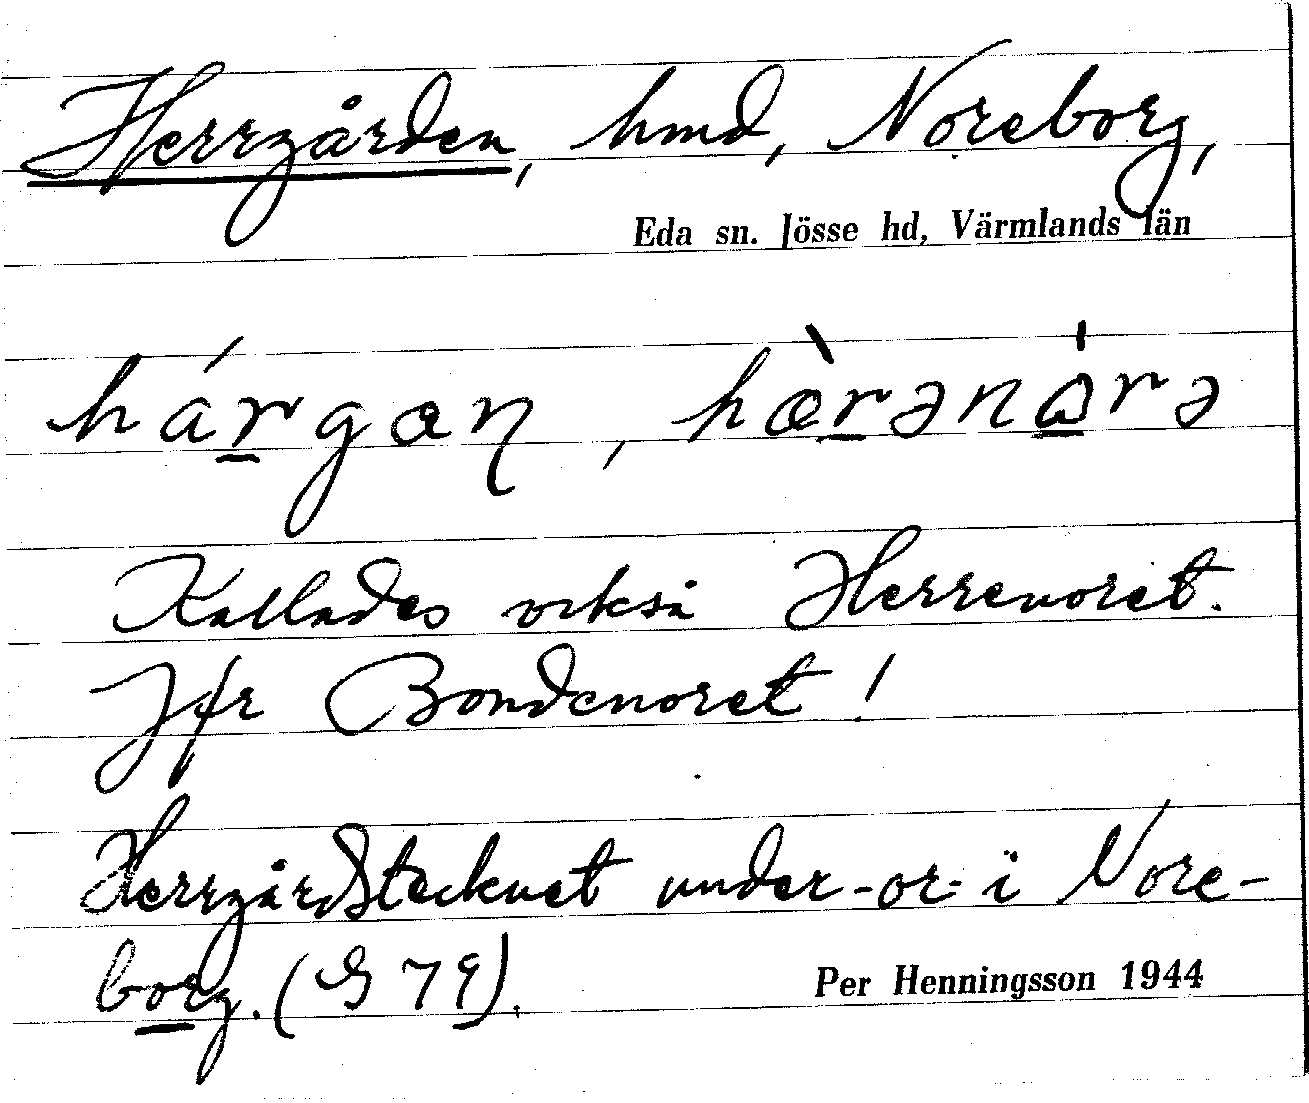 Herrgården, hmd, Noreborg,
Eda sn. Jösse hd, Värmlands län
hárgan, hæ̀rənɑ̍rə
Kallades också Herrenoret.
Jfr Bondenoret!
Herrgårdstecknet under -or- i Nore-
borg. (G 79).
Per Henningsson 1944